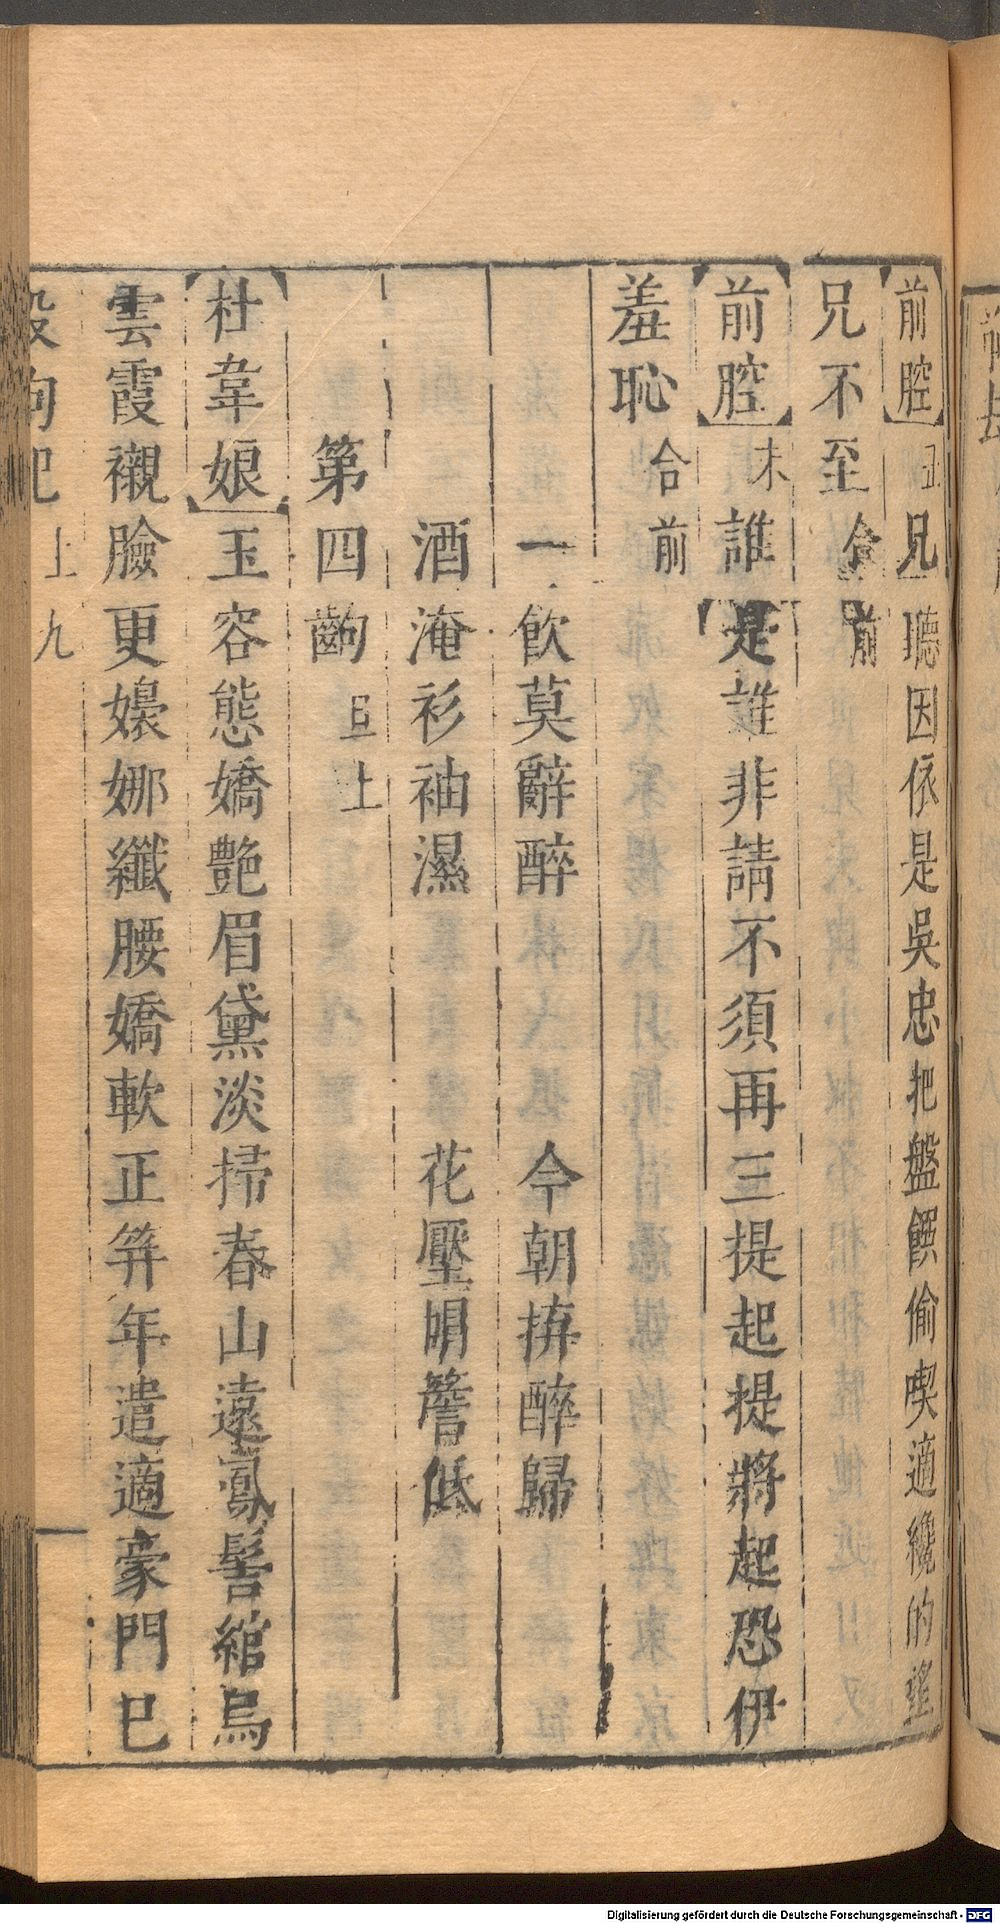 【前腔】丑兄聽因依是吳忠把盤饌偷喫適纔的望
兄不至合前
【前腔】末誰是誰非請不須再三提起提將起恐伊
羞恥合前
一飲莫辭醉　今朝拚醉歸
酒淹衫袖濕　花壓帽簷低
第四齣　旦上
【杜韋娘】玉容態嬌艷眉黛淡掃春山遠鳳髻綰烏
雲霞襯臉更嬝娜纖腰嬌軟正笄年遣適豪門已
殺狗記　上　九
Digitalisierung gefördert durch die Deutsche Forschungsgemeinschaft - DFG